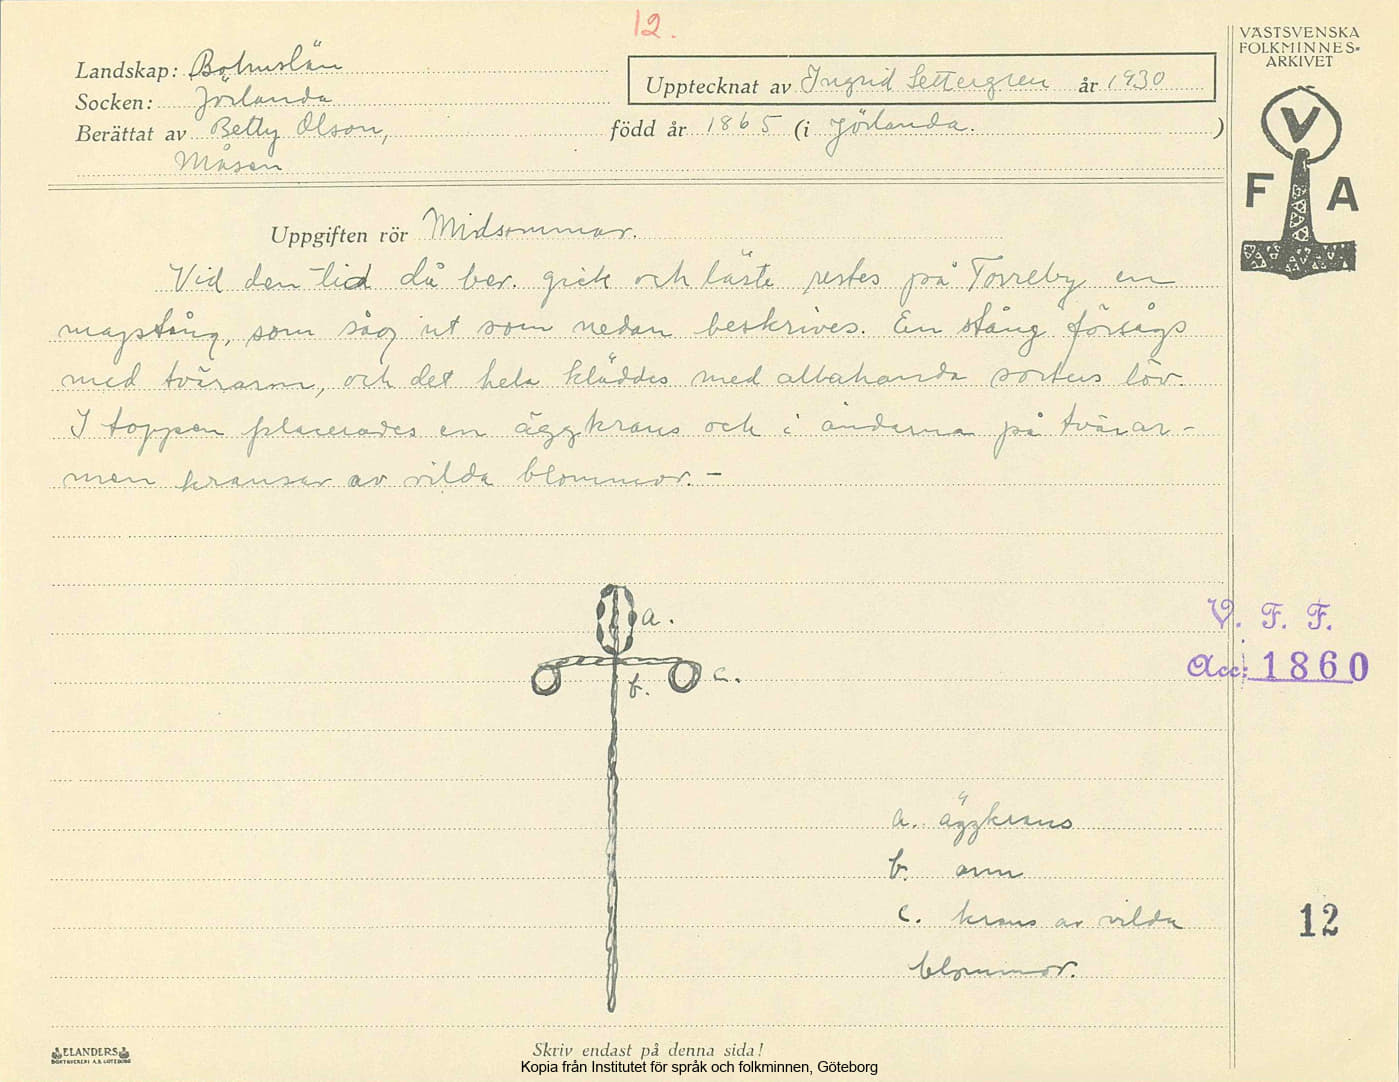 12.
VÄSTSVENSKA
FOLKMINNES-
ARKIVET
V
F A
Landskap: Bohuslän
Upptecknat av Ingrid Settergren år 1930
Socken: Jörlanda
Berättat av Betty Olson, född år 1865 (i Jörlanda. )
Måsen
Uppgiften rör Midsommar.
Vid den tid då ber. gick och läste restes på Torreby en
majstång, som såg ut som nedan beskrives. En stång försågs
med tvärarm, och det hela kläddes med allahanda sorters löv.
I toppen placerades en äggkrans och i ändarna på tvärar-
men kransar av vilda blommor. –
a.
b. c.
V. F. F.
Acc: 1860
a. äggkrans
b. arm
c. krans av vilda
blommor.
12
ELANDERS
BOKTRYCKERI A.B. GÖTEBORG
Skriv endast på denna sida!
Kopia från Institutet för språk och folkminnen, Göteborg